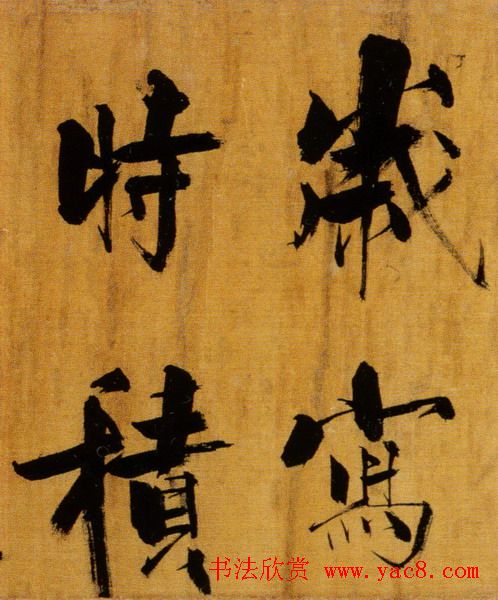 歲寫
時積
书法欣赏 www.yac8.com